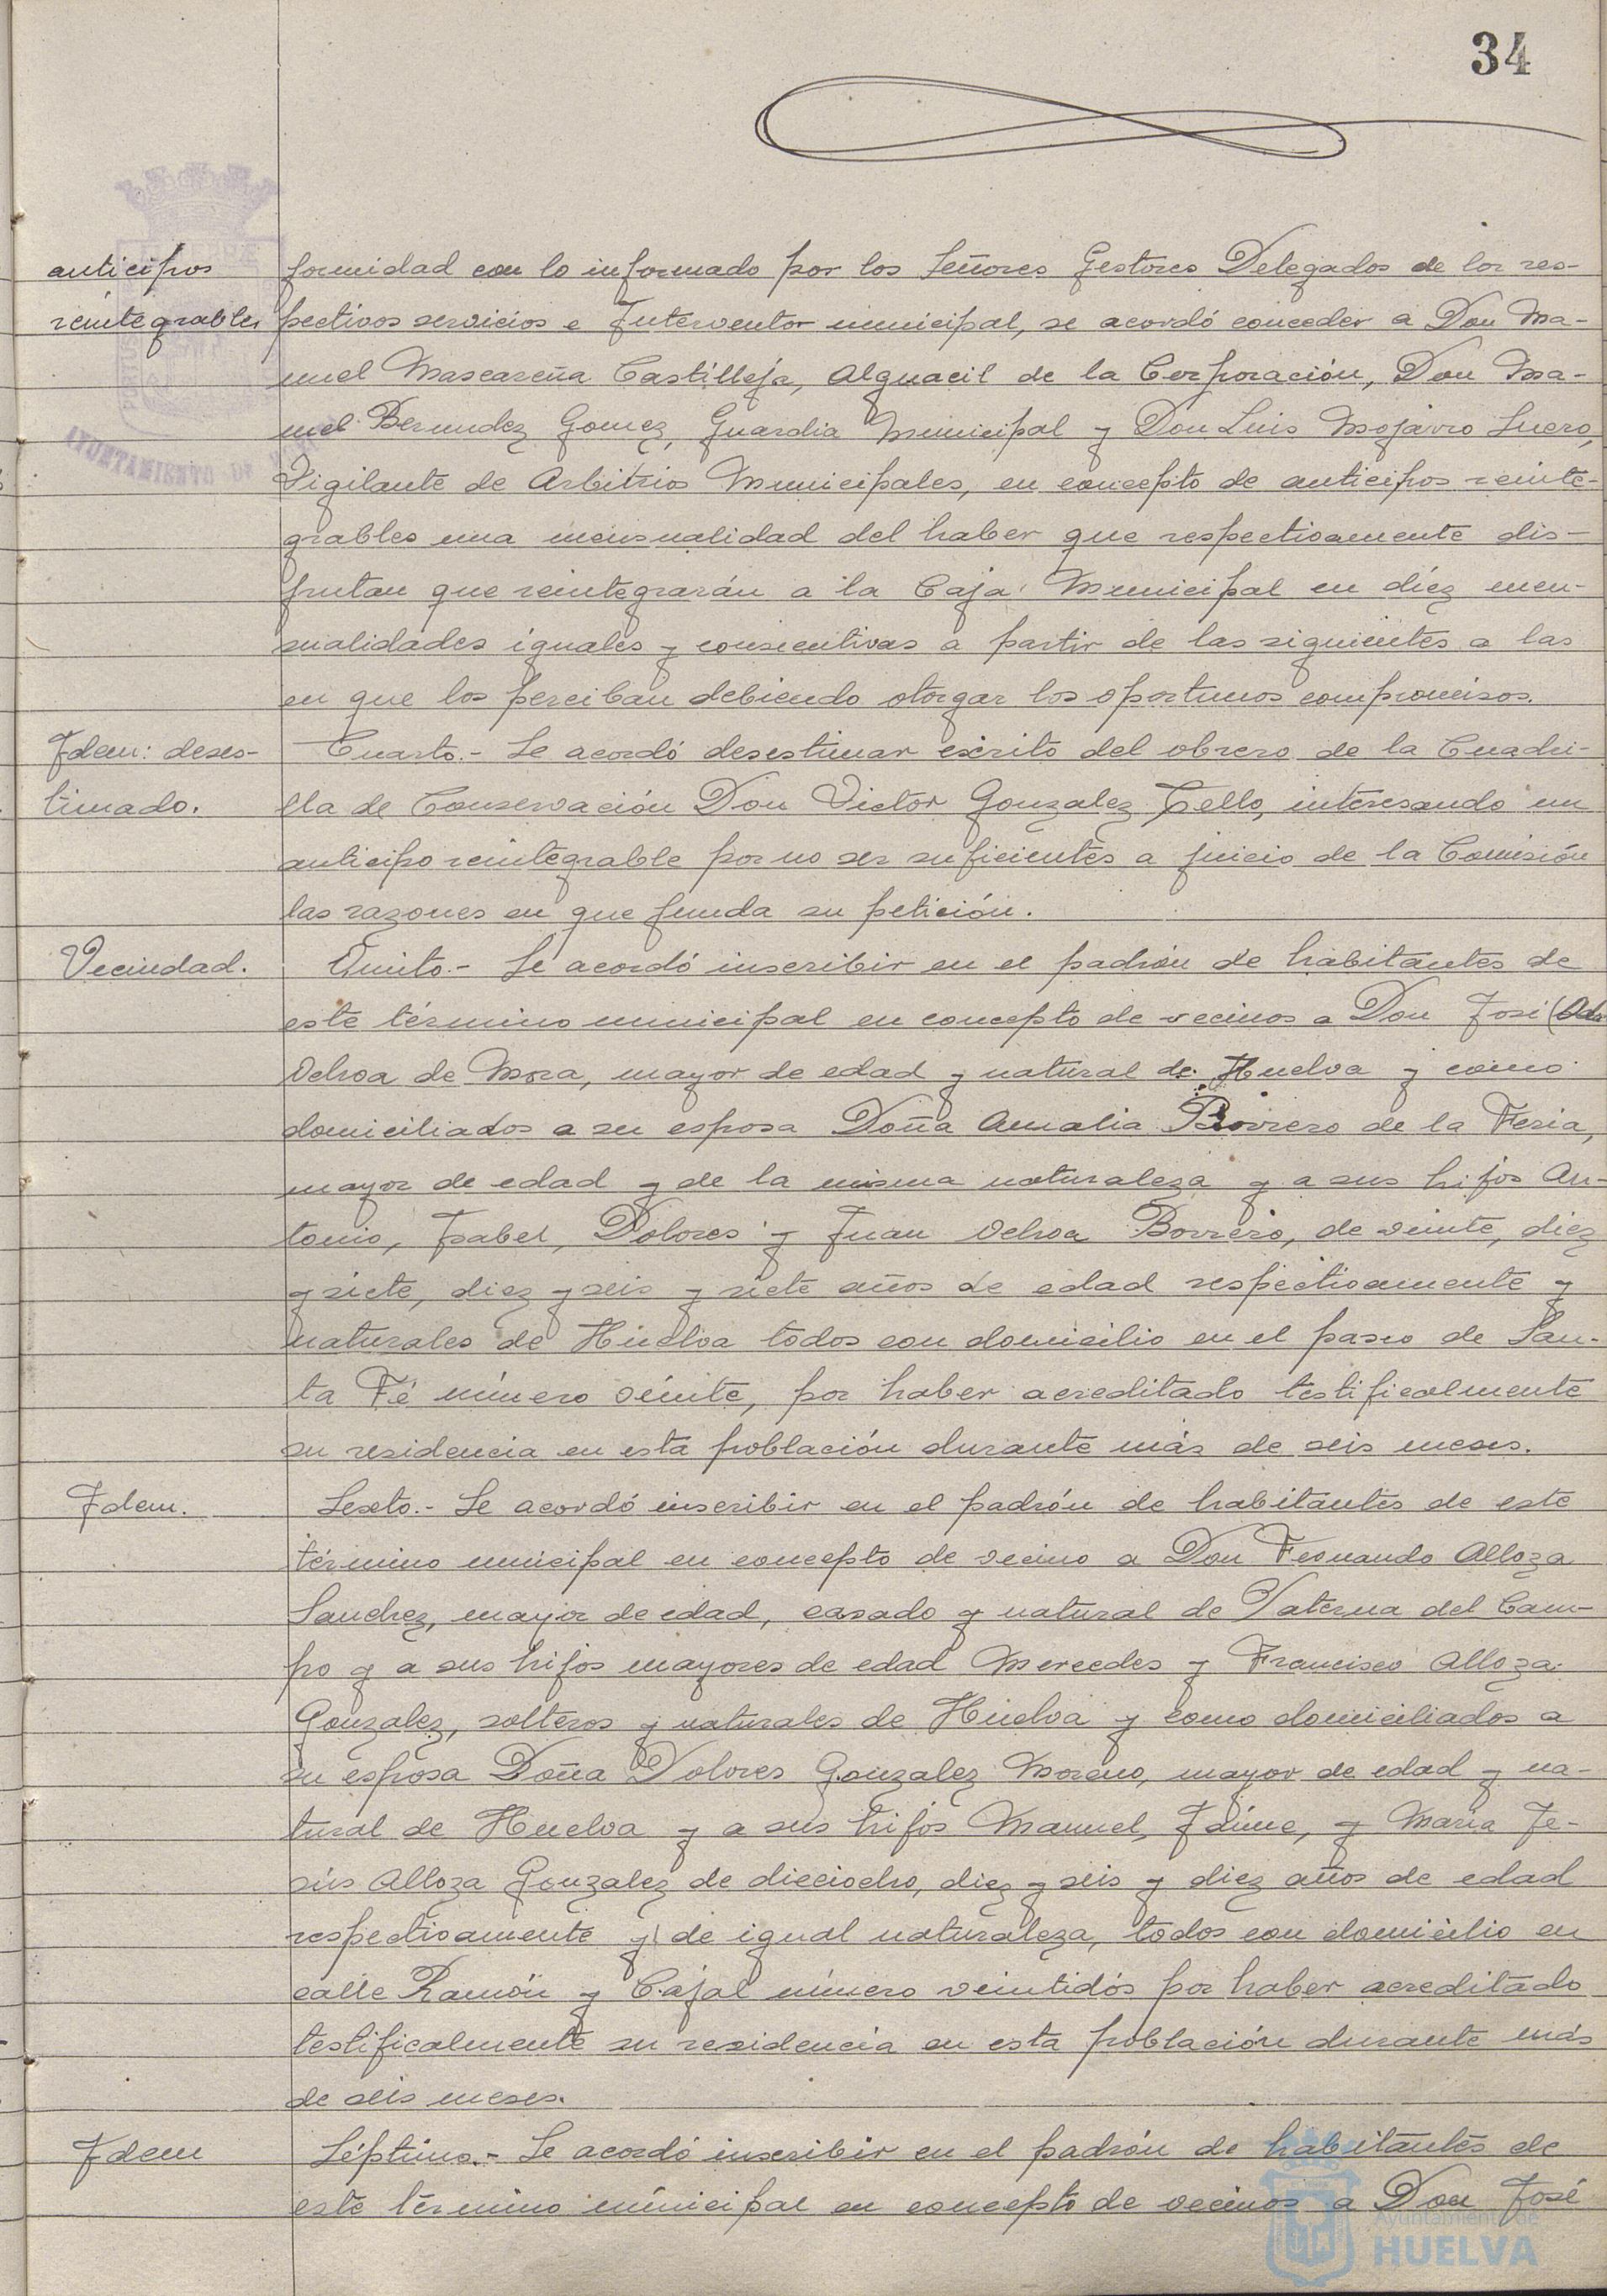 34
anticipos
reintegrables
formidad con lo informado por los Señores Gestores Delegados de los res-
pectivos servicios e Interventor municipal, se acordó conceder a Don Ma-
nuel Mascareña Castilleja, Alguacil de la Corporación, Don Ma-
nuel Bermudez Gomez, Guardia Municipal y Don Luis Mojarro Suero,
Vigilante de Arbitrios Municipales, en concepto de anticipos reinte-
grables una mensualidad del haber que respectivamente dis-
frutan que reintegrarán a la Caja Municipal en diez men-
sualidades iguales y consecutivas a partir de las siguientes a las
en que los perciban debiendo otorgar los oportunos compromisos.
Idem: deses-
timado.
Cuarto.- Se acordó desestimar escrito del obrero de la Cuadri-
lla de Conservación Don Victor Gonzalez Tello, interesando un
anticipo reintegrable por no ser suficientes a juicio de la Comisión
las razones en que funda su petición.
Vecindad.
Quinto.- Se acordó inscribir en el padrón de habitantes de
este término municipal en concepto de vecinos a Don José
Ochoa de Mora, mayor de edad y natural de Huelva y como
domiciliados a su esposa Doña Amalia Borrero de la Feria,
mayor de edad y de la misma naturaleza y a sus hijos An-
tonio, Isabel, Dolores y Juan Ochoa Borrero, de veinte, diez
y siete, diez y seis y siete años de edad respectivamente y
naturales de Huelva todos con domicilio en el paseo de San-
ta Fé número veinte, por haber acreditado testificalmente
su residencia en esta población durante más de seis meses.
Idem.
Sexto.- Se acordó inscribir en el padrón de habitantes de este
término municipal en concepto de vecino a Don Fernando Alloza
Sanchez, mayor de edad, casado y natural de Paterna del Cam-
po y a sus hijos mayores de edad Mercedes y Francisco Alloza
Gonzalez, solteros y naturales de Huelva y como domiciliados a
su esposa Doña Dolores Gonzalez Moreno, mayor de edad y na-
tural de Huelva y a sus hijos Manuel, Jaime, y Maria Je-
sús Alloza Gonzalez de dieciocho, diez y seis y diez años de edad
respectivamente y de igual naturaleza, todos con domicilio en
calle Ramón y Cajal número veintidós por haber acreditado
testificalmente su residencia en esta población durante más
de seis meses.
Idem
Séptimo.- Se acordó inscribir en el padrón de habitantes de
este término municipal en concepto de vecinos a Don José
AYUNTAMIENTO DE
Ayuntamiento de
HUELVA